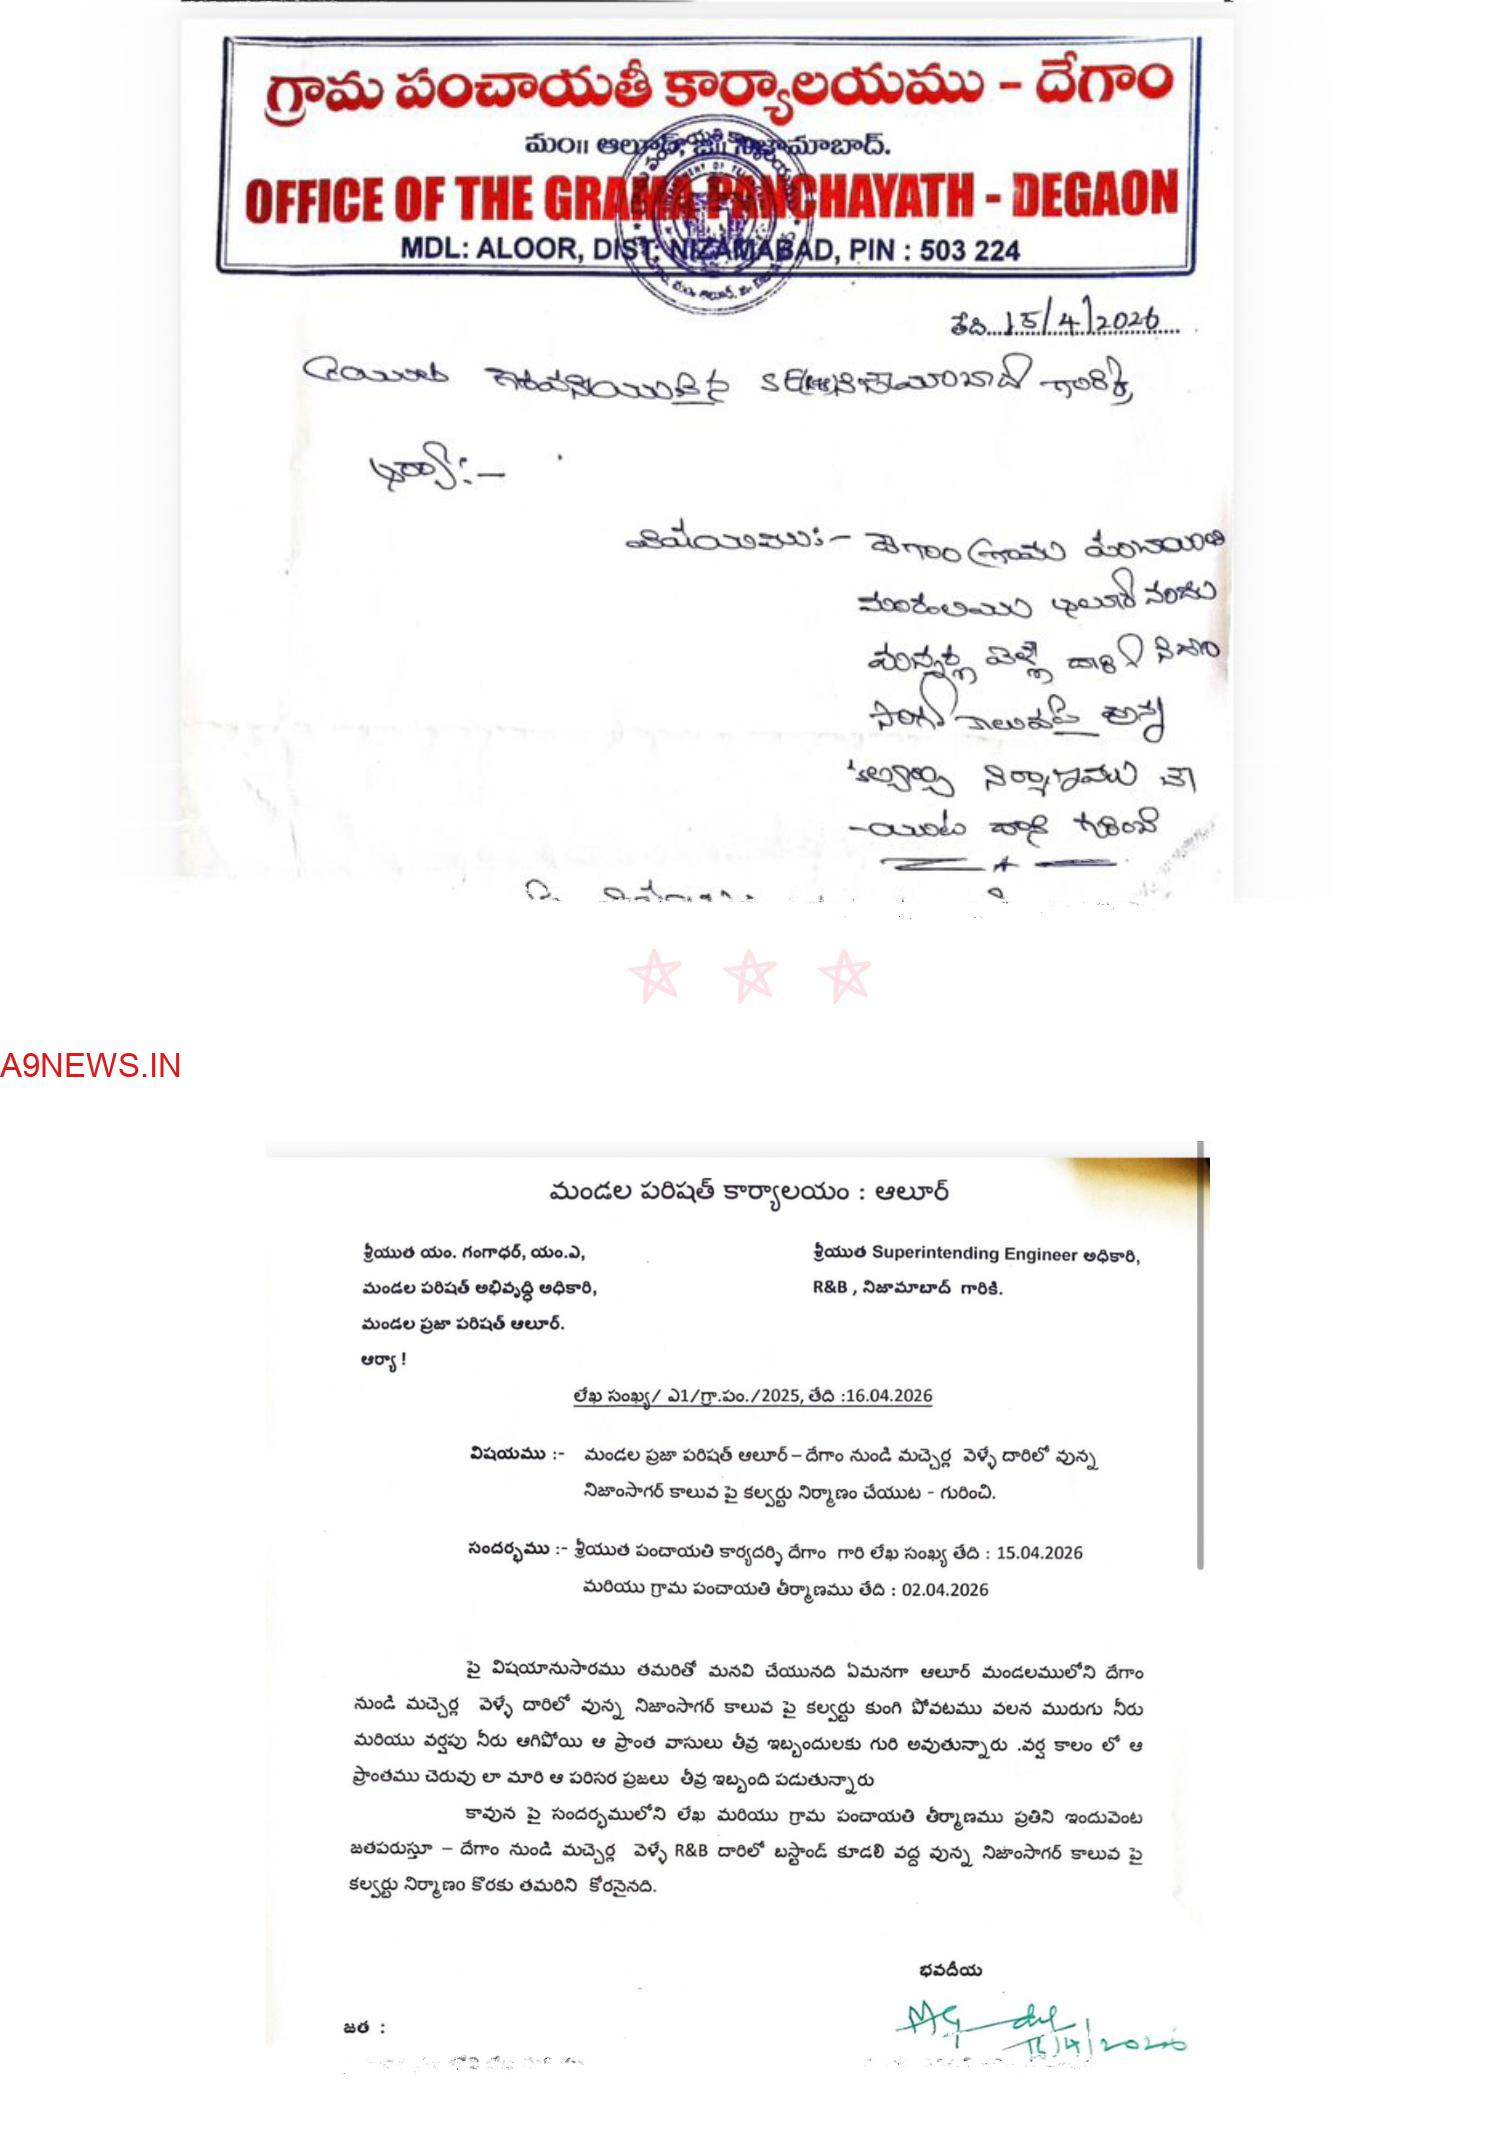 గ్రామ పంచాయతీ కార్యాలయము - దేగాం
మం॥ ఆలూర్, జి॥ నిజామాబాద్.
OFFICE OF THE GRAMA PANCHAYATH - DEGAON
MDL: ALOOR, DIST: NIZAMABAD, PIN : 503 224
తేది...15/4/2026
ఆర్యా:-
విషయము:- దేగాం గ్రామ పంచాయితి
మండలము ఆలూర్ నందు
వెళ్ళే దారి నిజాం
సాగర్ కాలువపై ఉన్న
కల్వర్టు నిర్మాణము చే
-యుట గురించి
A9NEWS.IN
మండల పరిషత్ కార్యాలయం : ఆలూర్
శ్రీయుత యం. గంగాధర్, యం.ఎ,
మండల పరిషత్ అభివృద్ధి అధికారి,
మండల ప్రజా పరిషత్ ఆలూర్.
శ్రీయుత Superintending Engineer అధికారి,
R&B , నిజామాబాద్ గారికి.
ఆర్యా !
లేఖ సంఖ్య/ ఎ1/గ్రా.పం./2025, తేది :16.04.2026
విషయము :- మండల ప్రజా పరిషత్ ఆలూర్ – దేగాం నుండి మచ్చెర్ల వెళ్ళే దారిలో వున్న
నిజాంసాగర్ కాలువ పై కల్వర్టు నిర్మాణం చేయుట - గురించి.
సందర్భము :- శ్రీయుత పంచాయతి కార్యదర్శి దేగాం గారి లేఖ సంఖ్య తేది : 15.04.2026
మరియు గ్రామ పంచాయతి తీర్మాణము తేది : 02.04.2026
పై విషయానుసారము తమరితో మనవి చేయునది ఏమనగా ఆలూర్ మండలములోని దేగాం
నుండి మచ్చెర్ల వెళ్ళే దారిలో వున్న నిజాంసాగర్ కాలువ పై కల్వర్టు కుంగి పోవటము వలన మురుగు నీరు
మరియు వర్షపు నీరు ఆగిపోయి ఆ ప్రాంత వాసులు తీవ్ర ఇబ్బందులకు గురి అవుతున్నారు .వర్ష కాలం లో ఆ
ప్రాంతము చెరువు లా మారి ఆ పరిసర ప్రజలు తీవ్ర ఇబ్బంది పడుతున్నారు
కావున పై సందర్భములోని లేఖ మరియు గ్రామ పంచాయతి తీర్మాణము ప్రతిని ఇందువెంట
జతపరుస్తూ – దేగాం నుండి మచ్చెర్ల వెళ్ళే R&B దారిలో బస్టాండ్ కూడలి వద్ద వున్న నిజాంసాగర్ కాలువ పై
కల్వర్టు నిర్మాణం కొరకు తమరిని కోరనైనది.
భవదీయ
16/4/2026
జత :